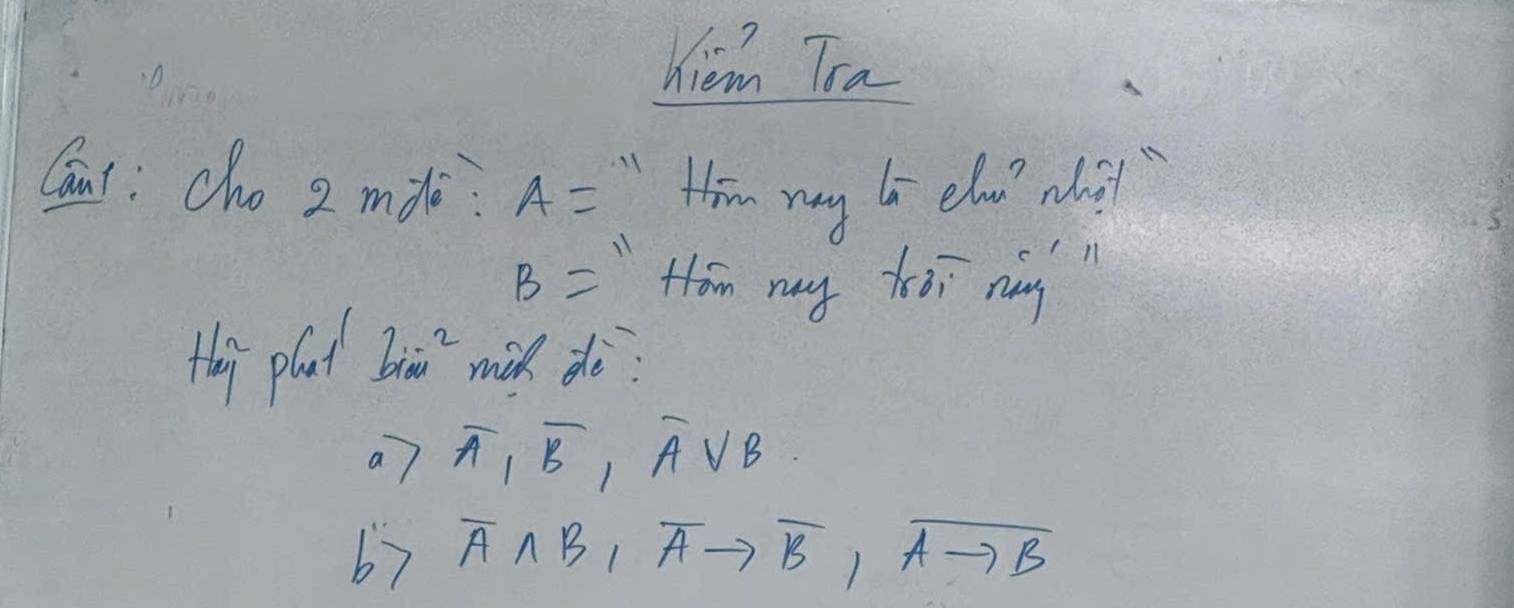 Kiểm Tra
Câu 1: Cho 2 mđề: A = "Hôm nay là chủ nhật"
B = "Hôm nay trời nắng"
Hãy phát biểu mệnh đề:
a> A̅, B̅, A̅ ∨ B.
b> A̅ ∧ B, A̅ → B̅, \overline{A → B}